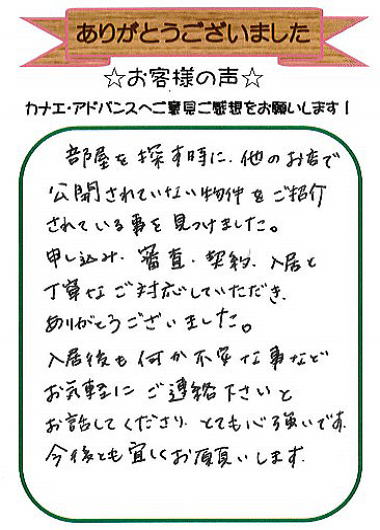 ありがとうございました
☆お客様の声☆
カナエ・アドバンスへご意見ご感想をお願いします！
部屋を探す時に、他のお店で
公開されていない物件をご紹介
されている事を見つけました。
申し込み、審査、契約、入居と
丁寧なご対応していただき、
ありがとうございました。
入居後も何か不安な事など
お気軽にご連絡下さいと
お話してくださり、とても心強いです。
今後とも宜しくお願いします。